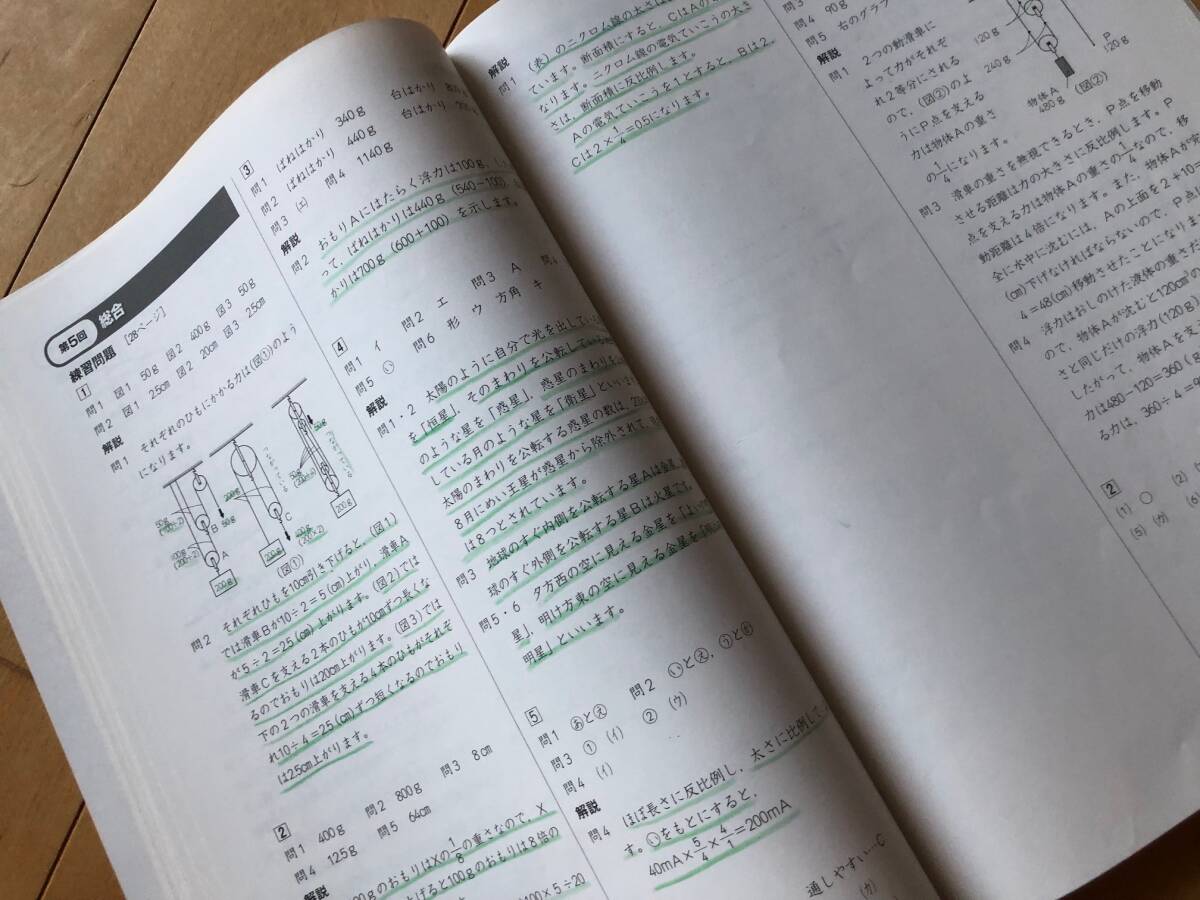 第5回 総合
練習問題 [28ページ]
1
問1 図1 50g 図2 400g 図3 50g
問2 図1 2.5cm 図2 20cm 図3 2.5cm
解説
問1 それぞれのひもにかかる力は(図①)のよう
になります。
50g
B
A
200g
200g
C
200g
(図①)
問2 それぞれひもを10cm引き下げると、(図1)
では滑車Bが10÷2=5(cm)上がり、滑車A
が5÷2=2.5(cm)上がります。(図2)では
滑車Cを支える2本のひもが10cmずつ長くな
るのでおもりは20cm上がります。(図3)では
下の2つの滑車を支える4本のひもがそれぞ
れ10÷4=2.5(cm)ずつ短くなるのでおもり
は2.5cm上がります。
2
問1 400g 問2 800g 問3 8cm
問4 125g 問5 64cm
解説
のおもりはXの1/8の重さなので、X
げると100gのおもりは8倍の
100×5÷20
3
問1 ばねはかり 340g 台はかり
問2 ばねはかり 440g 台はかり
問3 (エ) 問4 1140g
解説
問2 おもりAにはたらく浮力は100g、
って、ばねはかりは440g(540-100)、
かりは700g(600+100)を示します。
4
問1 イ 問2 エ 問3 A 問4
問5 ⓘ 問6 形 ウ 方角 キ
解説
問1・2 太陽のように自分で光を出して
を「恒星」、そのまわりを公転して
のような星を「惑星」、惑星のまわりを
している月のような星を「衛星」といい
太陽のまわりを公転する惑星の数は、
8月にめい王星が惑星から除外されて、
は8つとされています。
問3 地球のすぐ内側を公転する星Aは金星、
球のすぐ外側を公転する星Bは火星です。
問5・6 夕方西の空に見える金星を「よい
星」、明け方東の空に見える金星を「
明星」といいます。
5
問1 あとえ 問2 いとえ、うとお
問3 ① (イ) ② (ウ)
問4 (イ)
解説
問4 ほぼ長さに反比例し、太さに比例して
す。いをもとにすると、
40mA×5/4×4/1=200mA
通しやすい…C
(カ)
解説
問1 (表)のニクロム線の太さは
ています。断面積にすると、CはAの
なります。ニクロム線の電気ていこうの大き
さは、断面積に反比例します。
Aの電気ていこうを1とすると、Bは2、
Cは2×1/4=0.5になります。
問3
問4 90g
問5 右のグラフ
解説
問1 2つの動滑車に
よって力がそれぞ
れ2等分にされる
ので、(図②)のよ
うにP点を支える
力は物体Aの重さ
の1/4になります。
120g
240g
P
120g
物体A
480g
(図②)
問3 滑車の重さを無視できるとき、P点を移動
させる距離は力の大きさに反比例します。P
点を支える力は物体Aの重さの1/4なので、移
動距離は4倍になります。また、物体Aが
全に水中に沈むには、Aの上面を2+10
(cm)下げなければならないので、P点
4=48(cm)移動させたことになりま
問4 浮力はおしのけた液体の重さ
ので、物体Aが沈むと120cm³の
さと同じだけの浮力(120g)
したがって、物体Aを支
力は480-120=360(g)
る力は、360÷4=
2
(1) ○ (2)
(5) (カ)